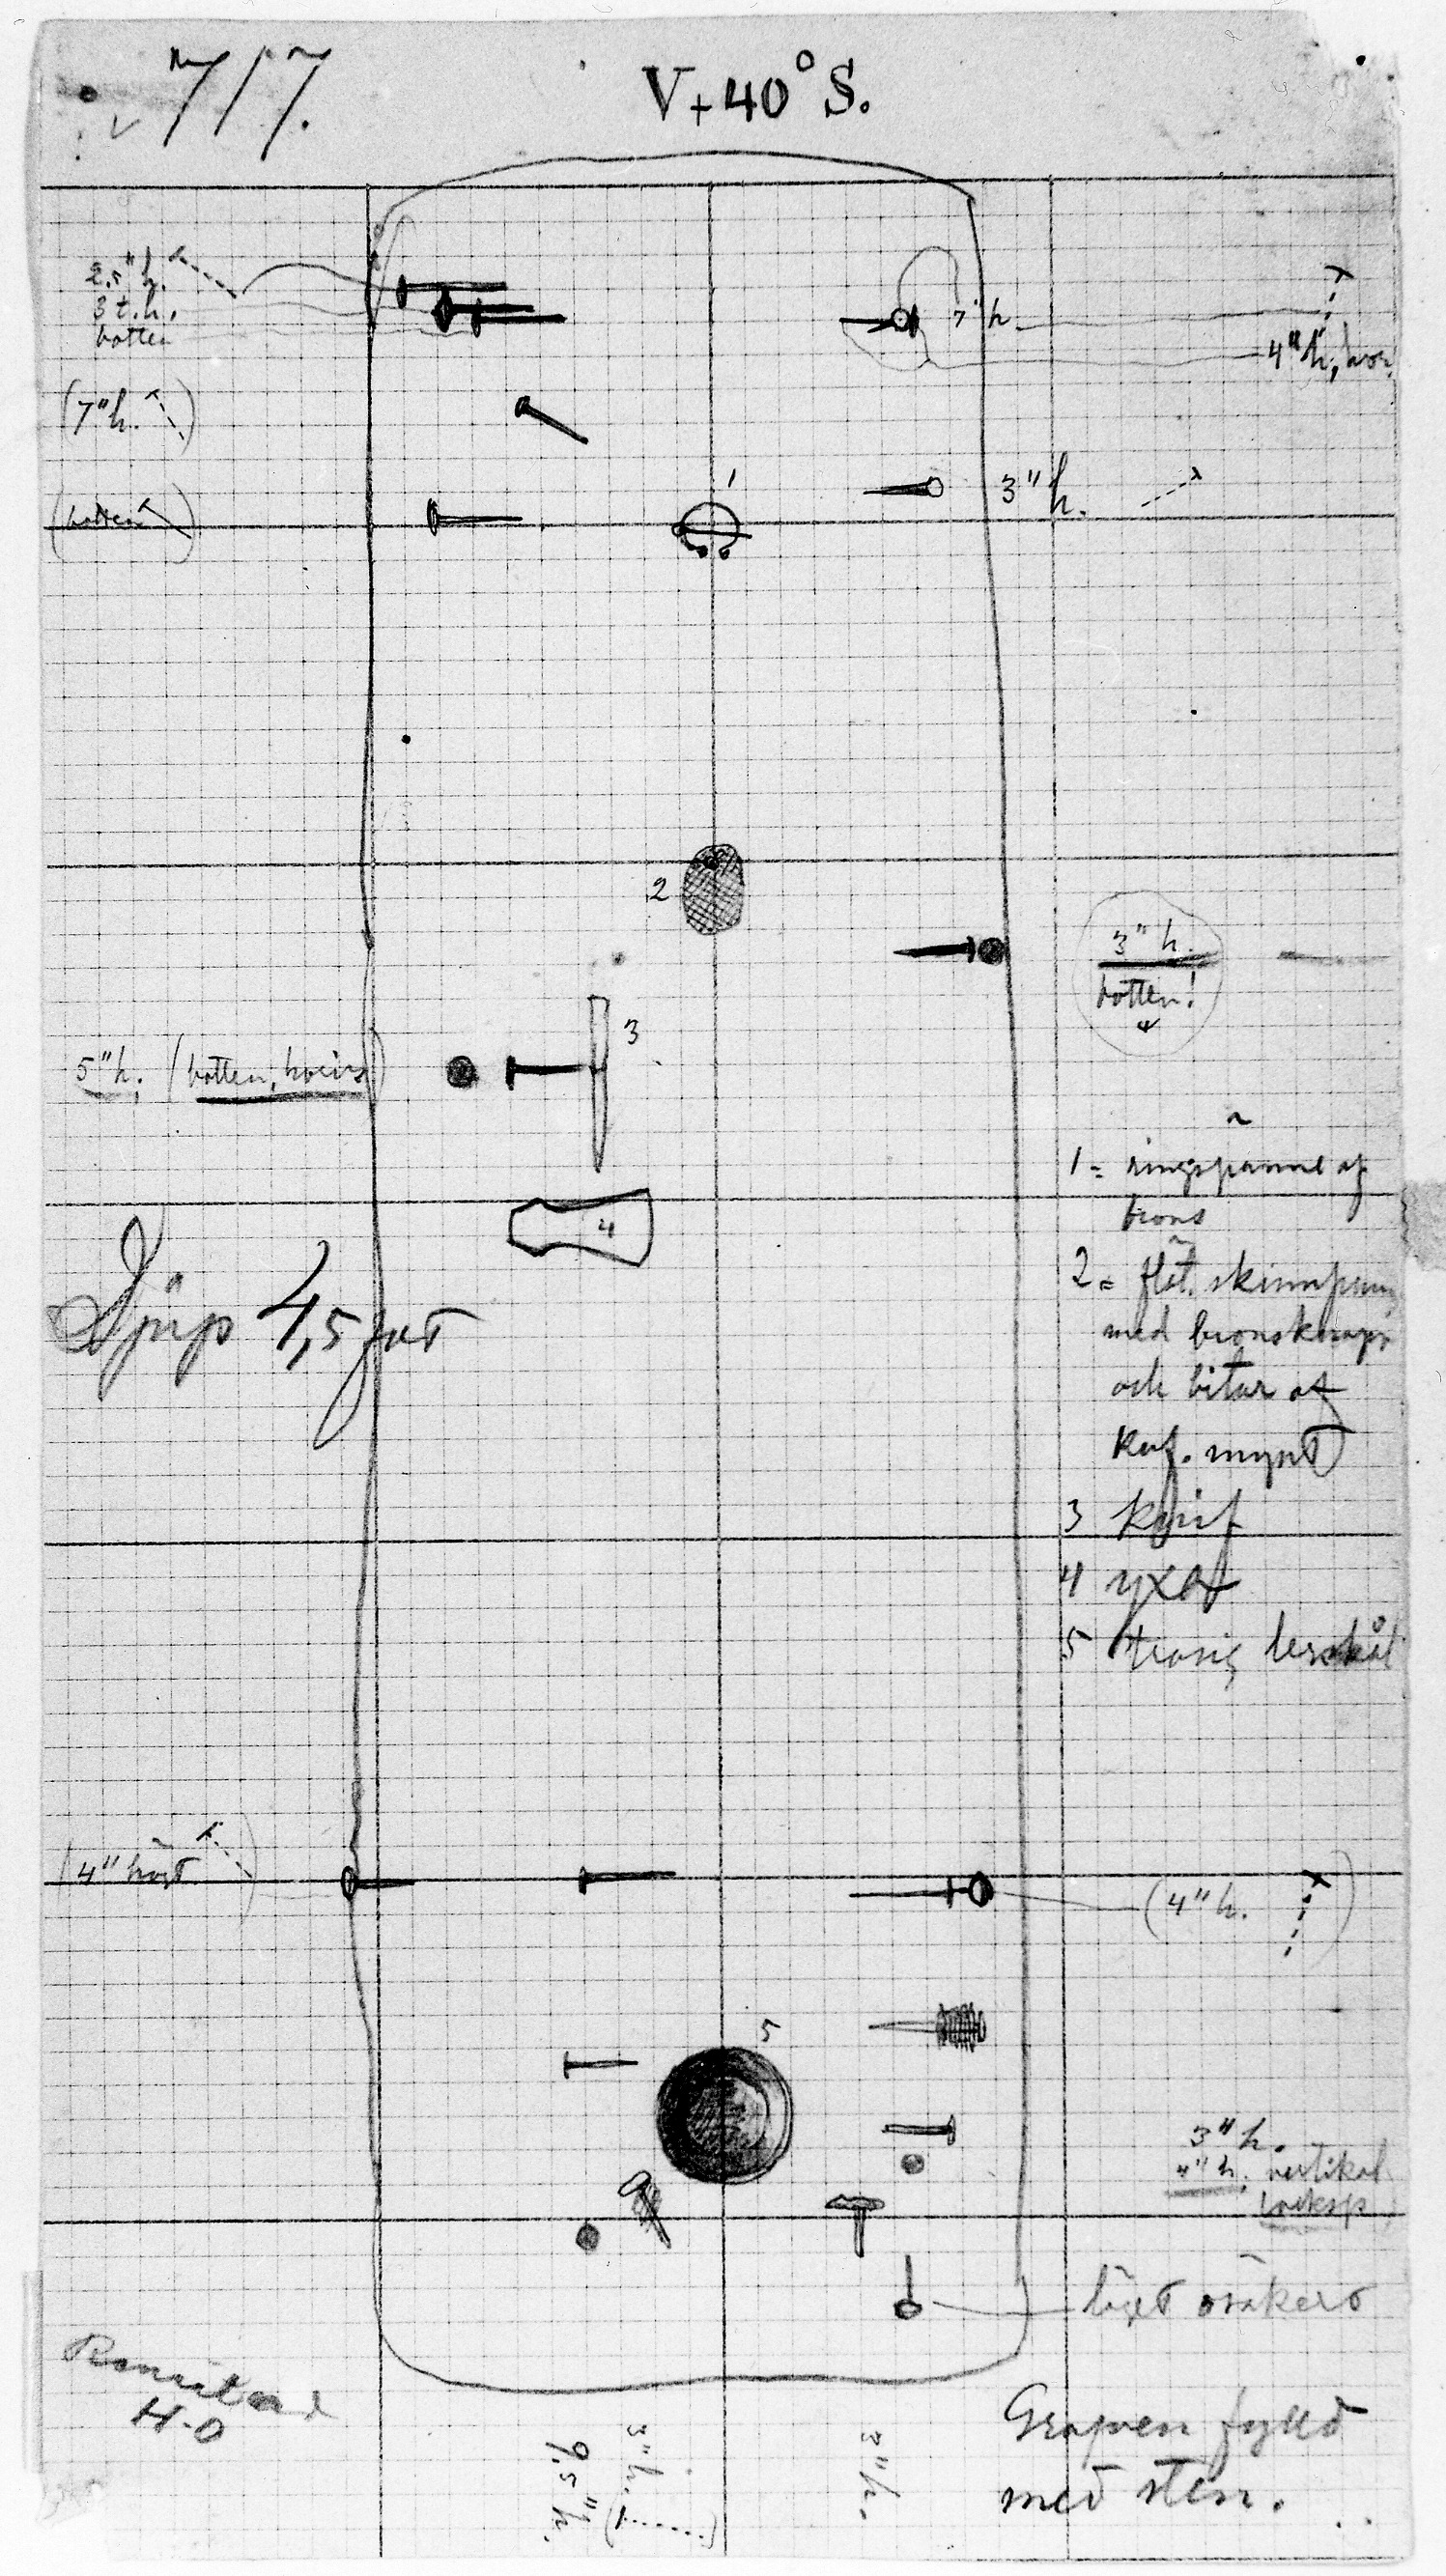 717.
V+40° S.
2.5" h.
3 t.h.
botten
7" h.
4" h,
(7" h.)
1
3" h.
(botten)
2
3" h.
botten!
3
5" h. (botten,
4
1 = ringspänne af
brons
Djup 4,5 fot
2 = flät. skinnpung
med bronsknapp
och bitar af
kuf. mynt
3 knif
4 yxa
5 trasig lerskål
(4" högt
(4" h. )
5
3" h.
4" h. vertikal
läget osäkert
H-O
Grafven fylld
med sten.
3" h.
9.5" h.
3" h.